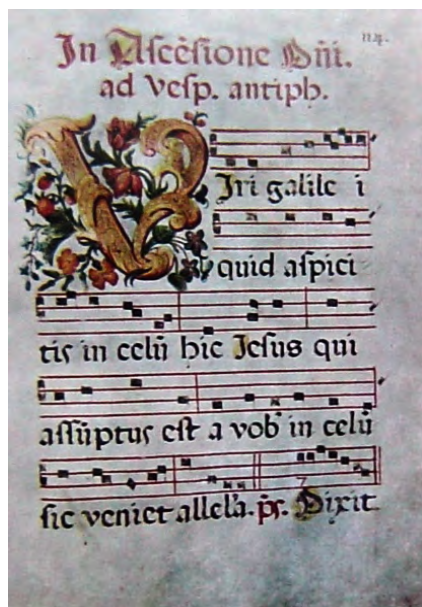 In Ascẽsione Dñi.
114.
ad Vesp. antiph.
VIri galile i
quid aspici
tis in celũ hic Jesus qui
assũptus est a vob' in celũ
sic veniet allel'a. p̃s. Dixit